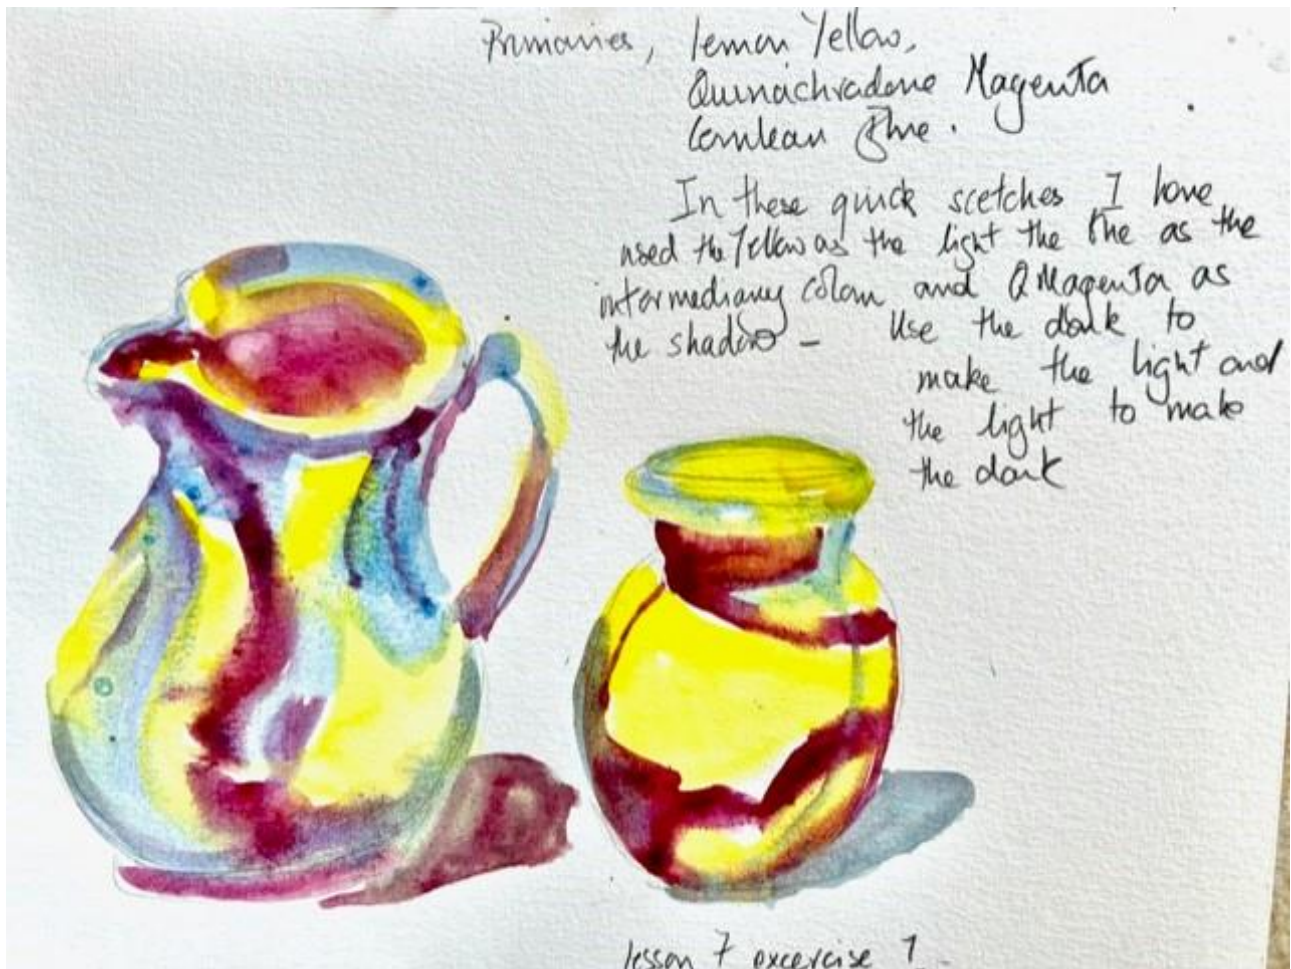 Primaries, lemon Yellow,
Quinachradone Magenta
Cerulean Blue.
In these quick scetches I have
used the Yellow as the light the blue as the
intermediary colour and Q Magenta as
the shadow – Use the dark to
make the light and
the light to make
the dark
lesson 7 excercise 1